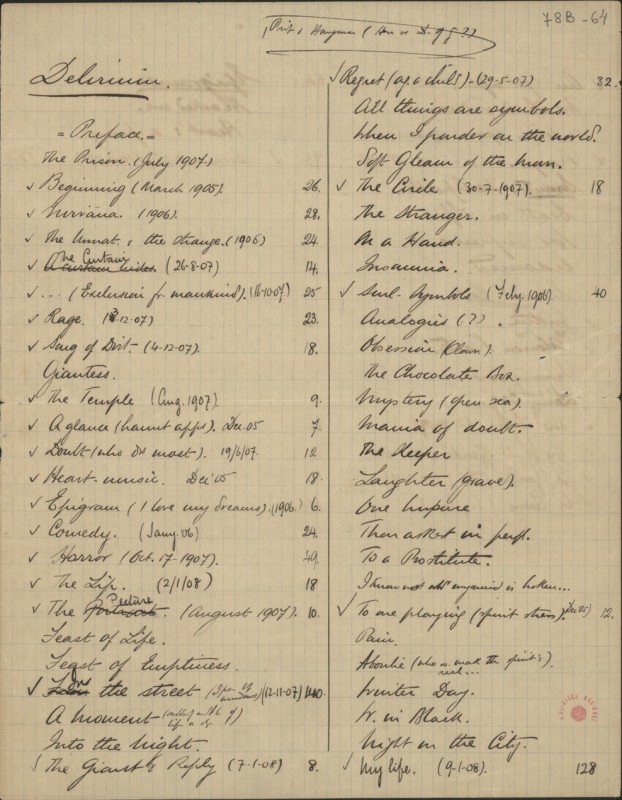 78B-64
Delirium.
= Preface =
The Prison. (July 1907)
✓ Beginning (March 1905). 26.
✓ Nirvâna. (1906). 28.
✓ The Unnat. & the strange. (1906) 24.
✓ The Curtain (26-8-07) 14.
✓ ... (Exclusion fr. mankind). (16-10-07) 25
✓ Rage. (13-12-07) 23.
✓ Song of Dirt. (4-12-07). 18.
Giantess.
✓ The Temple (Aug. 1907). 9.
✓ A glance (haunt apps). Dec. 05 7.
✓ Doubt (who most). 19/6/07. 12
✓ Heart-music. Dec 05 18.
✓ Epigram (I love my dreams). (1906) 6.
✓ Comedy. (Jany. 06) 24.
✓ Horror (Oct. 17-1907). 49.
✓ The Lip. (2/1/08) 18
✓ The Picture. (August 1907). 10.
Feast of Life.
Feast of Emptiness.
✓ the street (12-11-07) 40.
A moment
Into the Night.
✓ The Giant's Reply (7-1-08) 8.
✓ Regret (of a child) - (29-5-07) 32.
All things are symbols.
When I ponder on the world.
Soft Gleam of the Moon.
✓ The Circle (30-7-1907). 18
The Stranger.
In a Hand.
Insomnia.
✓ Soul-Symbols (Feby. 1906) 40
Analogies (??).
Obsession (Clown).
The Chocolate Box.
Mystery (open sea).
Mania of doubt.
The Sleeper
Laughter (grave).
One Impure
Thou asketh in
To a Prostitute.
I know not
✓ To one playing (spirit stress). Dec. 05) 12.
Pain.
Winter Day.
W. in Black.
Night in the City.
✓ My life. (9-1-08). 128